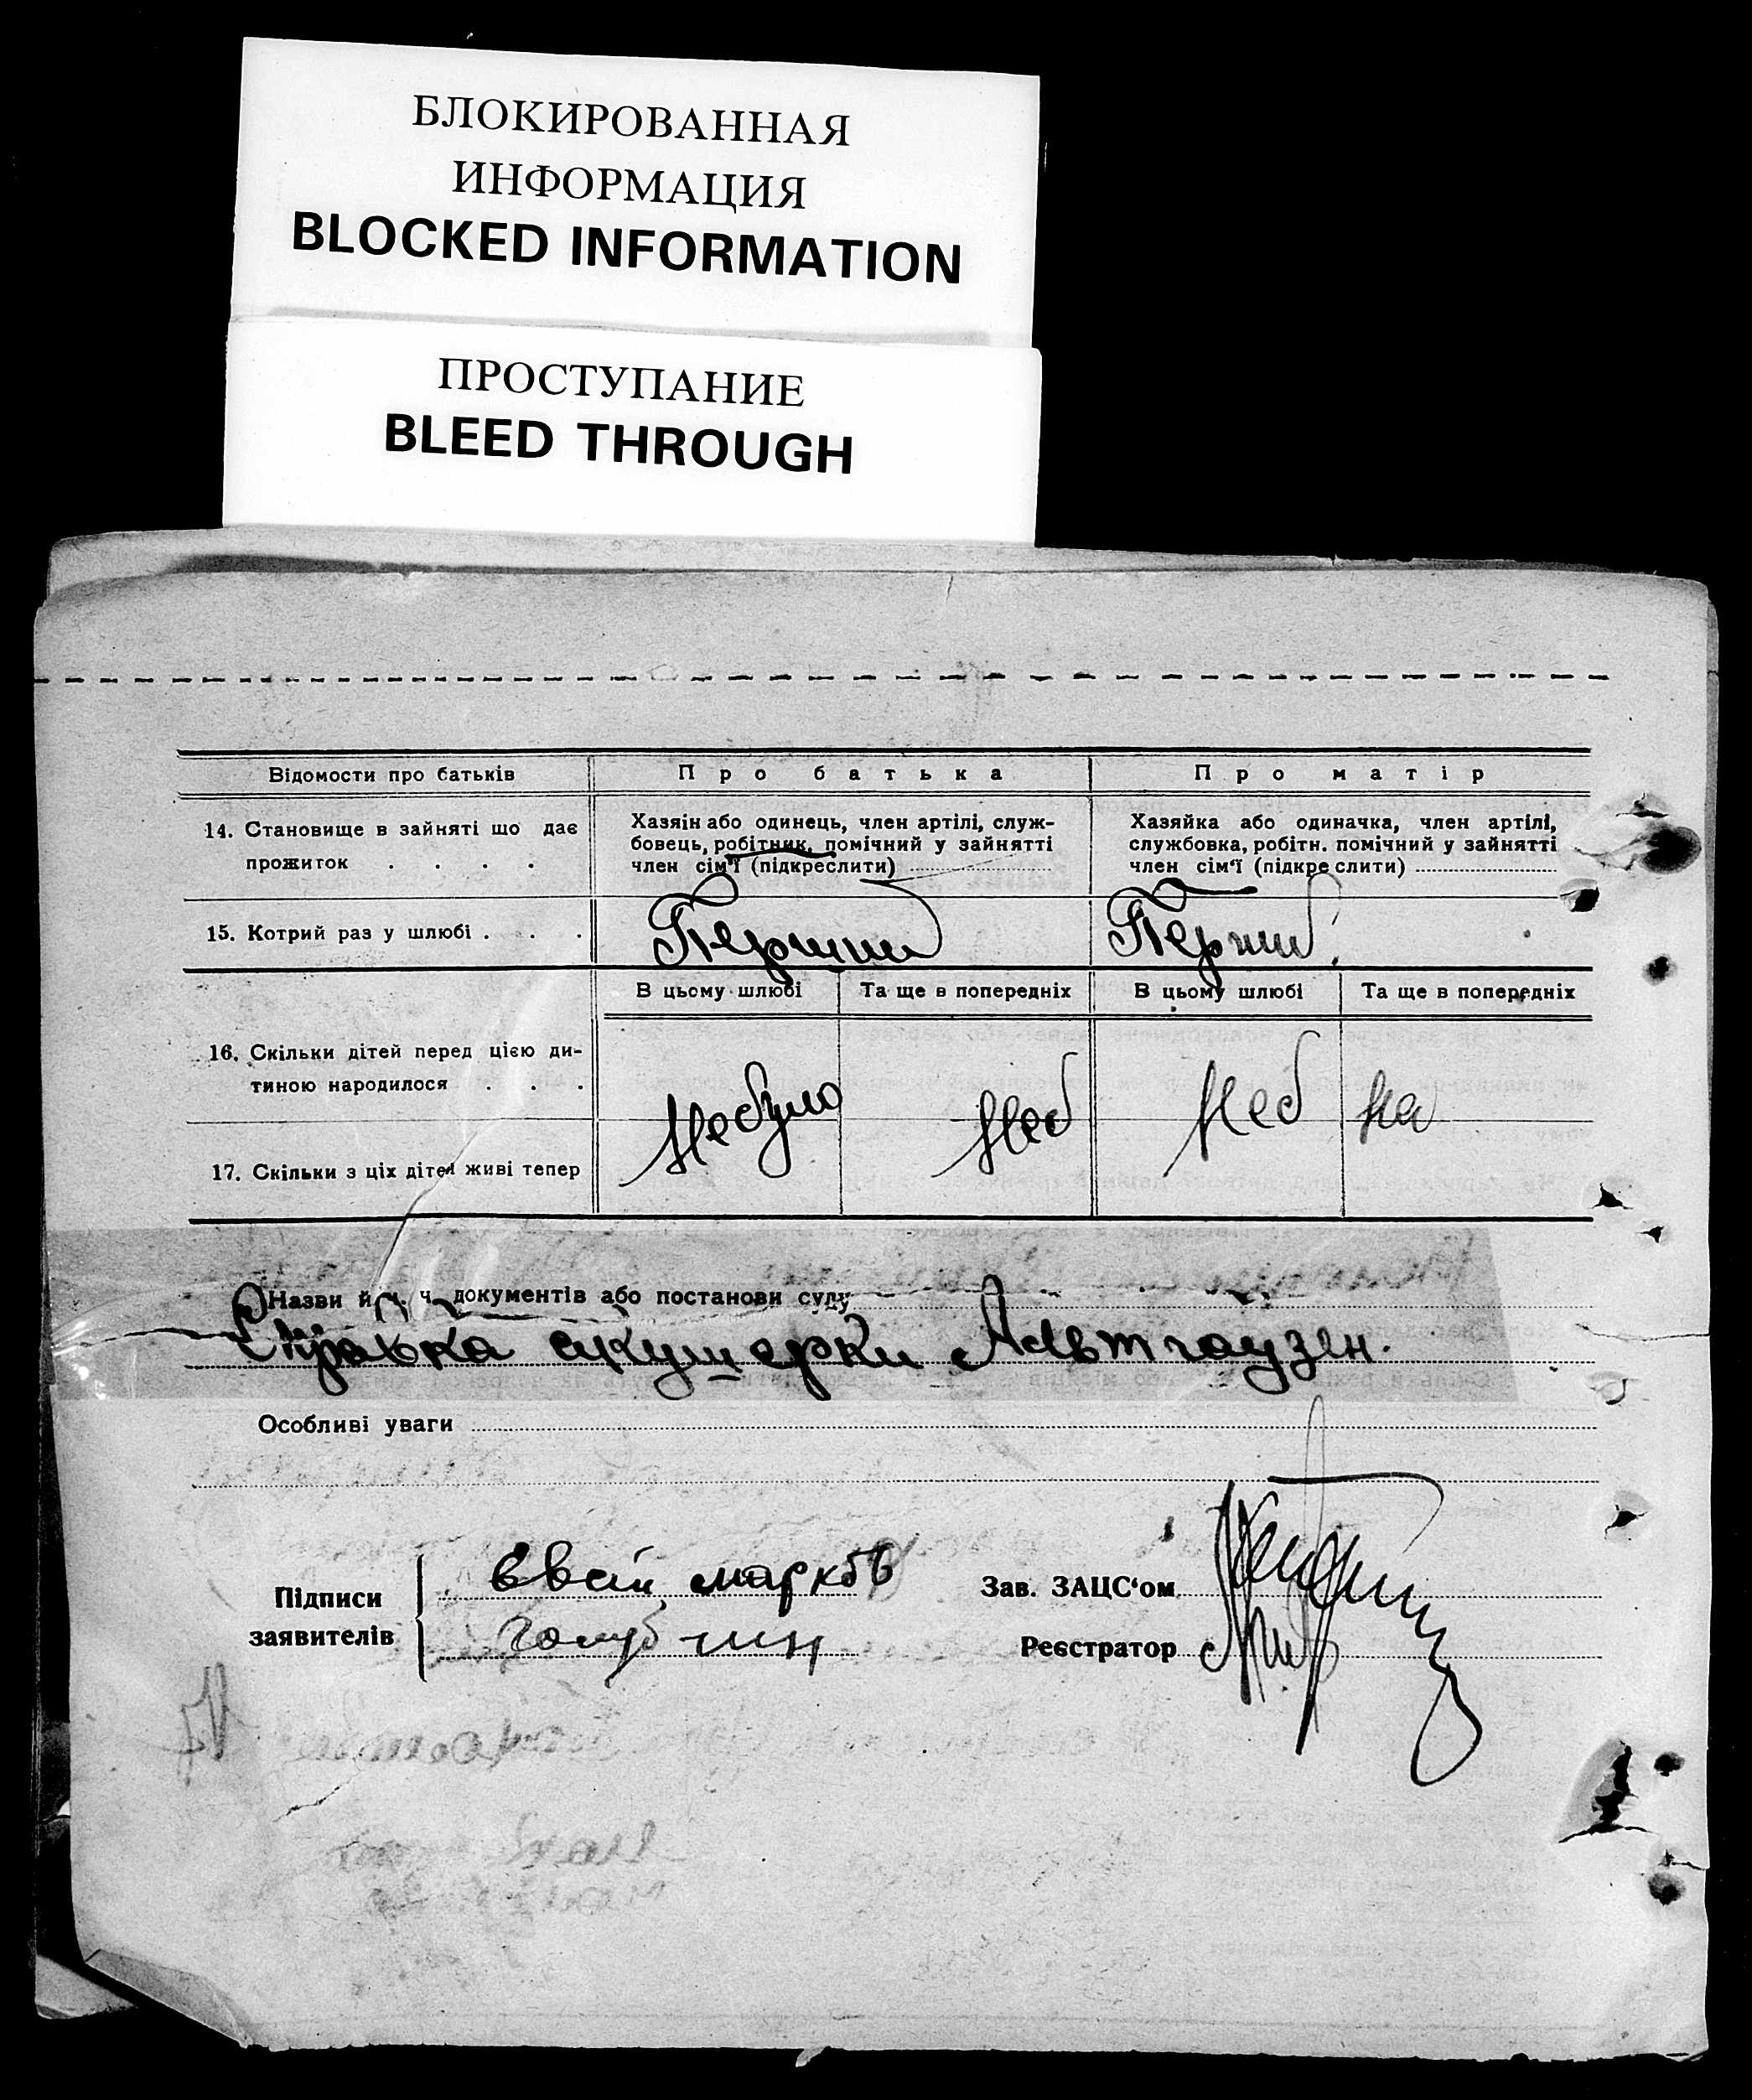 БЛОКИРОВАННАЯ
ИНФОРМАЦИЯ
BLOCKED INFORMATION
ПРОСТУПАНИЕ
BLEED THROUGH
Відомости про батьків
Про батька
Про матір
14. Становище в зайняті що дає
прожиток . . . .
Хазяін або одинець, член артілі, служ-
бовець, робітник, помічний у зайнятті
член сім'ї (підкреслити)
Хазяйка або одиначка, член артілі,
службовка, робітн. помічний у зайнятті
член сім'ї (підкреслити)
15. Котрий раз у шлюбі . . .
Перший
Перший
В цьому шлюбі
Та ще в попередніх
В цьому шлюбі
Та ще в попередніх
16. Скільки дітей перед цією ди-
тиною народилося . . .
Небуло
Неб
Неб
Не
17. Скільки з ціх дітей живі тепер
Назви й ч. ч. документів або постанови суду
Справка акушерки Альтгаузен.
Особливі уваги
Підписи
заявителів
марков
голуб
Зав. ЗАЦС'ом
Реєстратор